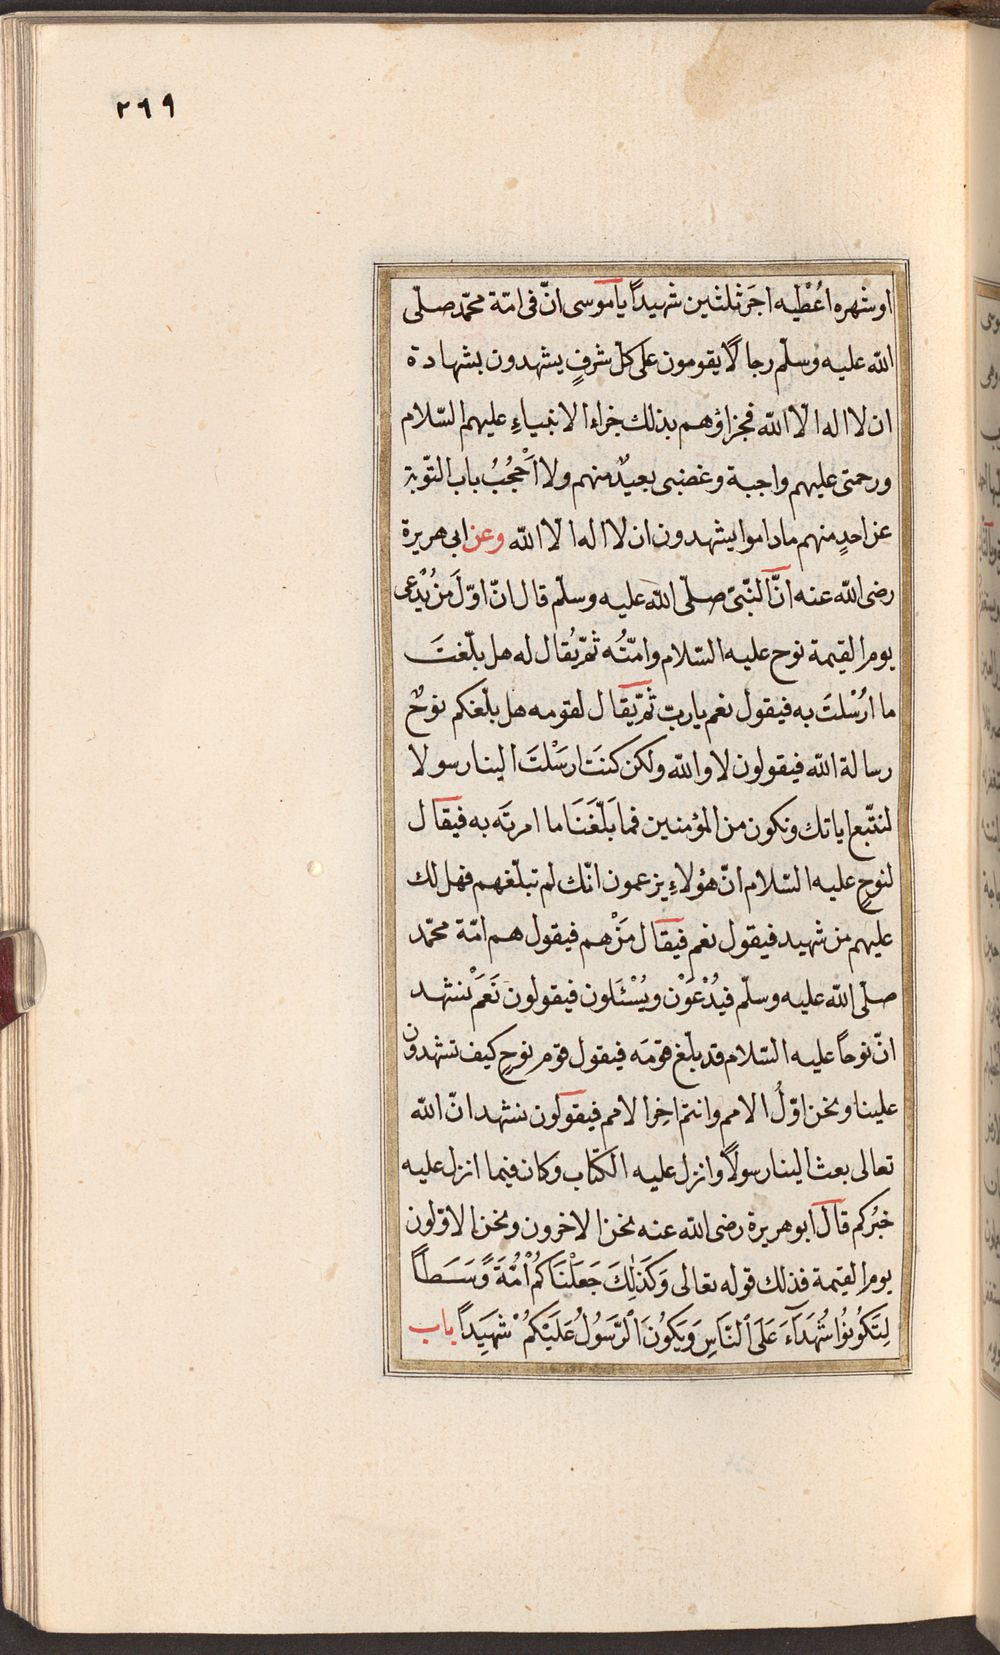 ٢٦٩
او شهره اُعْطيه اجرَ ثلثين شهيداً ياموسى انّ فى امّة محمّد صلّى
الله عليه وسلّم رجالًا يقومون على كلّ شرفٍ يشهدون بشهادة
ان لا اله الّا الله فجزاؤهم بذلك جزاء الانبياءِ عليهم السّلام
ورحمتى عليهم واجبة وغضبى بعيدٌ منهم ولا اَحْجُبُ باب التّوبة
عن احدٍ منهم ماداموا يشهدون ان لا اله الا الله وعن ابى هريرة
رضى الله عنه انّ النّبىّ صلّى الله عليه وسلّم قال انّ اوّلَ مَنْ يُدْعى
يوم القيمة نوح عليه السّلام وامّتُه ثمّ يُقال له هل بلّغتَ
ما اُرْسْلتَ به فيقول نعم يا ربّ ثمّ يقال لقومه هل بلّغكم نوحٌ
رسالة الله فيقولون لا والله ولكن كنتَ ارسَلْتَ الينا رسولا
لنتّبع اياتك ونكون من المؤمنين فما بَلّغَنَا ما امرتَه به فيقال
لنوحٍ عليه السّلام انّ هؤلاءِ يزعمون انّك لم تبلّغهم فهل لك
عليهم من شهيد فيقول نعم فيقال مَنْ هم فيقول هم امّة محمّد
صلّى الله عليه وسلّم فيُدْعَوْن ويُسْئَلون فيقولون نَعَمْ نشهد
انّ نوحاً عليه السّلام قد بلّغ قومَه فيقول قوم نوحٍ كيف تشهدون
علينا ونحن اوّلُ الامم وانتم اخِر الامم فيقولون نشهد انّ الله
تعالى بعث الينا رسولاً وانزل عليه الكتاب وكان فيما انزل عليه
خبُركم قال ابو هريرة رضى الله عنه نحن الاخرون ونحن الاوّلون
يوم القيمة فذلك قوله تعالى وَكَذٰلِكَ جَعَلْنَاكُمْ اُمَّةً وَسَطاً
لِتَكُونُوا شُهَدَآءَ عَلَى النَّاسِ وَيَكُونَ الرَّسُولُ عَلَيْكُمْ شَهِيداً باب